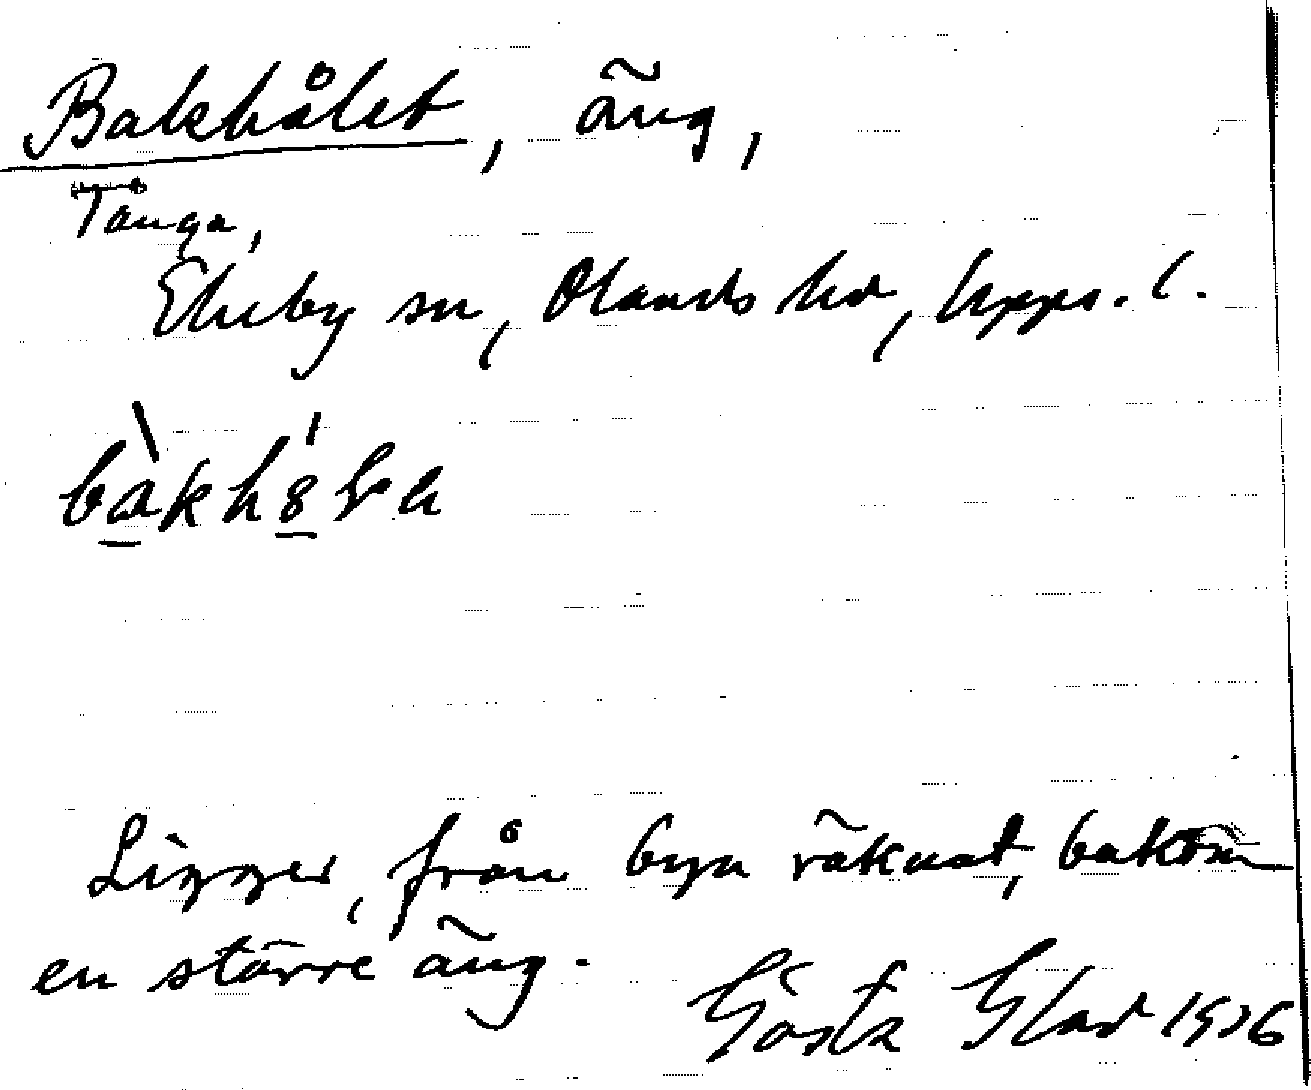 Bakhålet, äng,
Tånga,
Ekeby sn, Olands hd, Upps. l.
Ligger, från byn räknat, bakom
en större äng.
Gösta Glad 1936